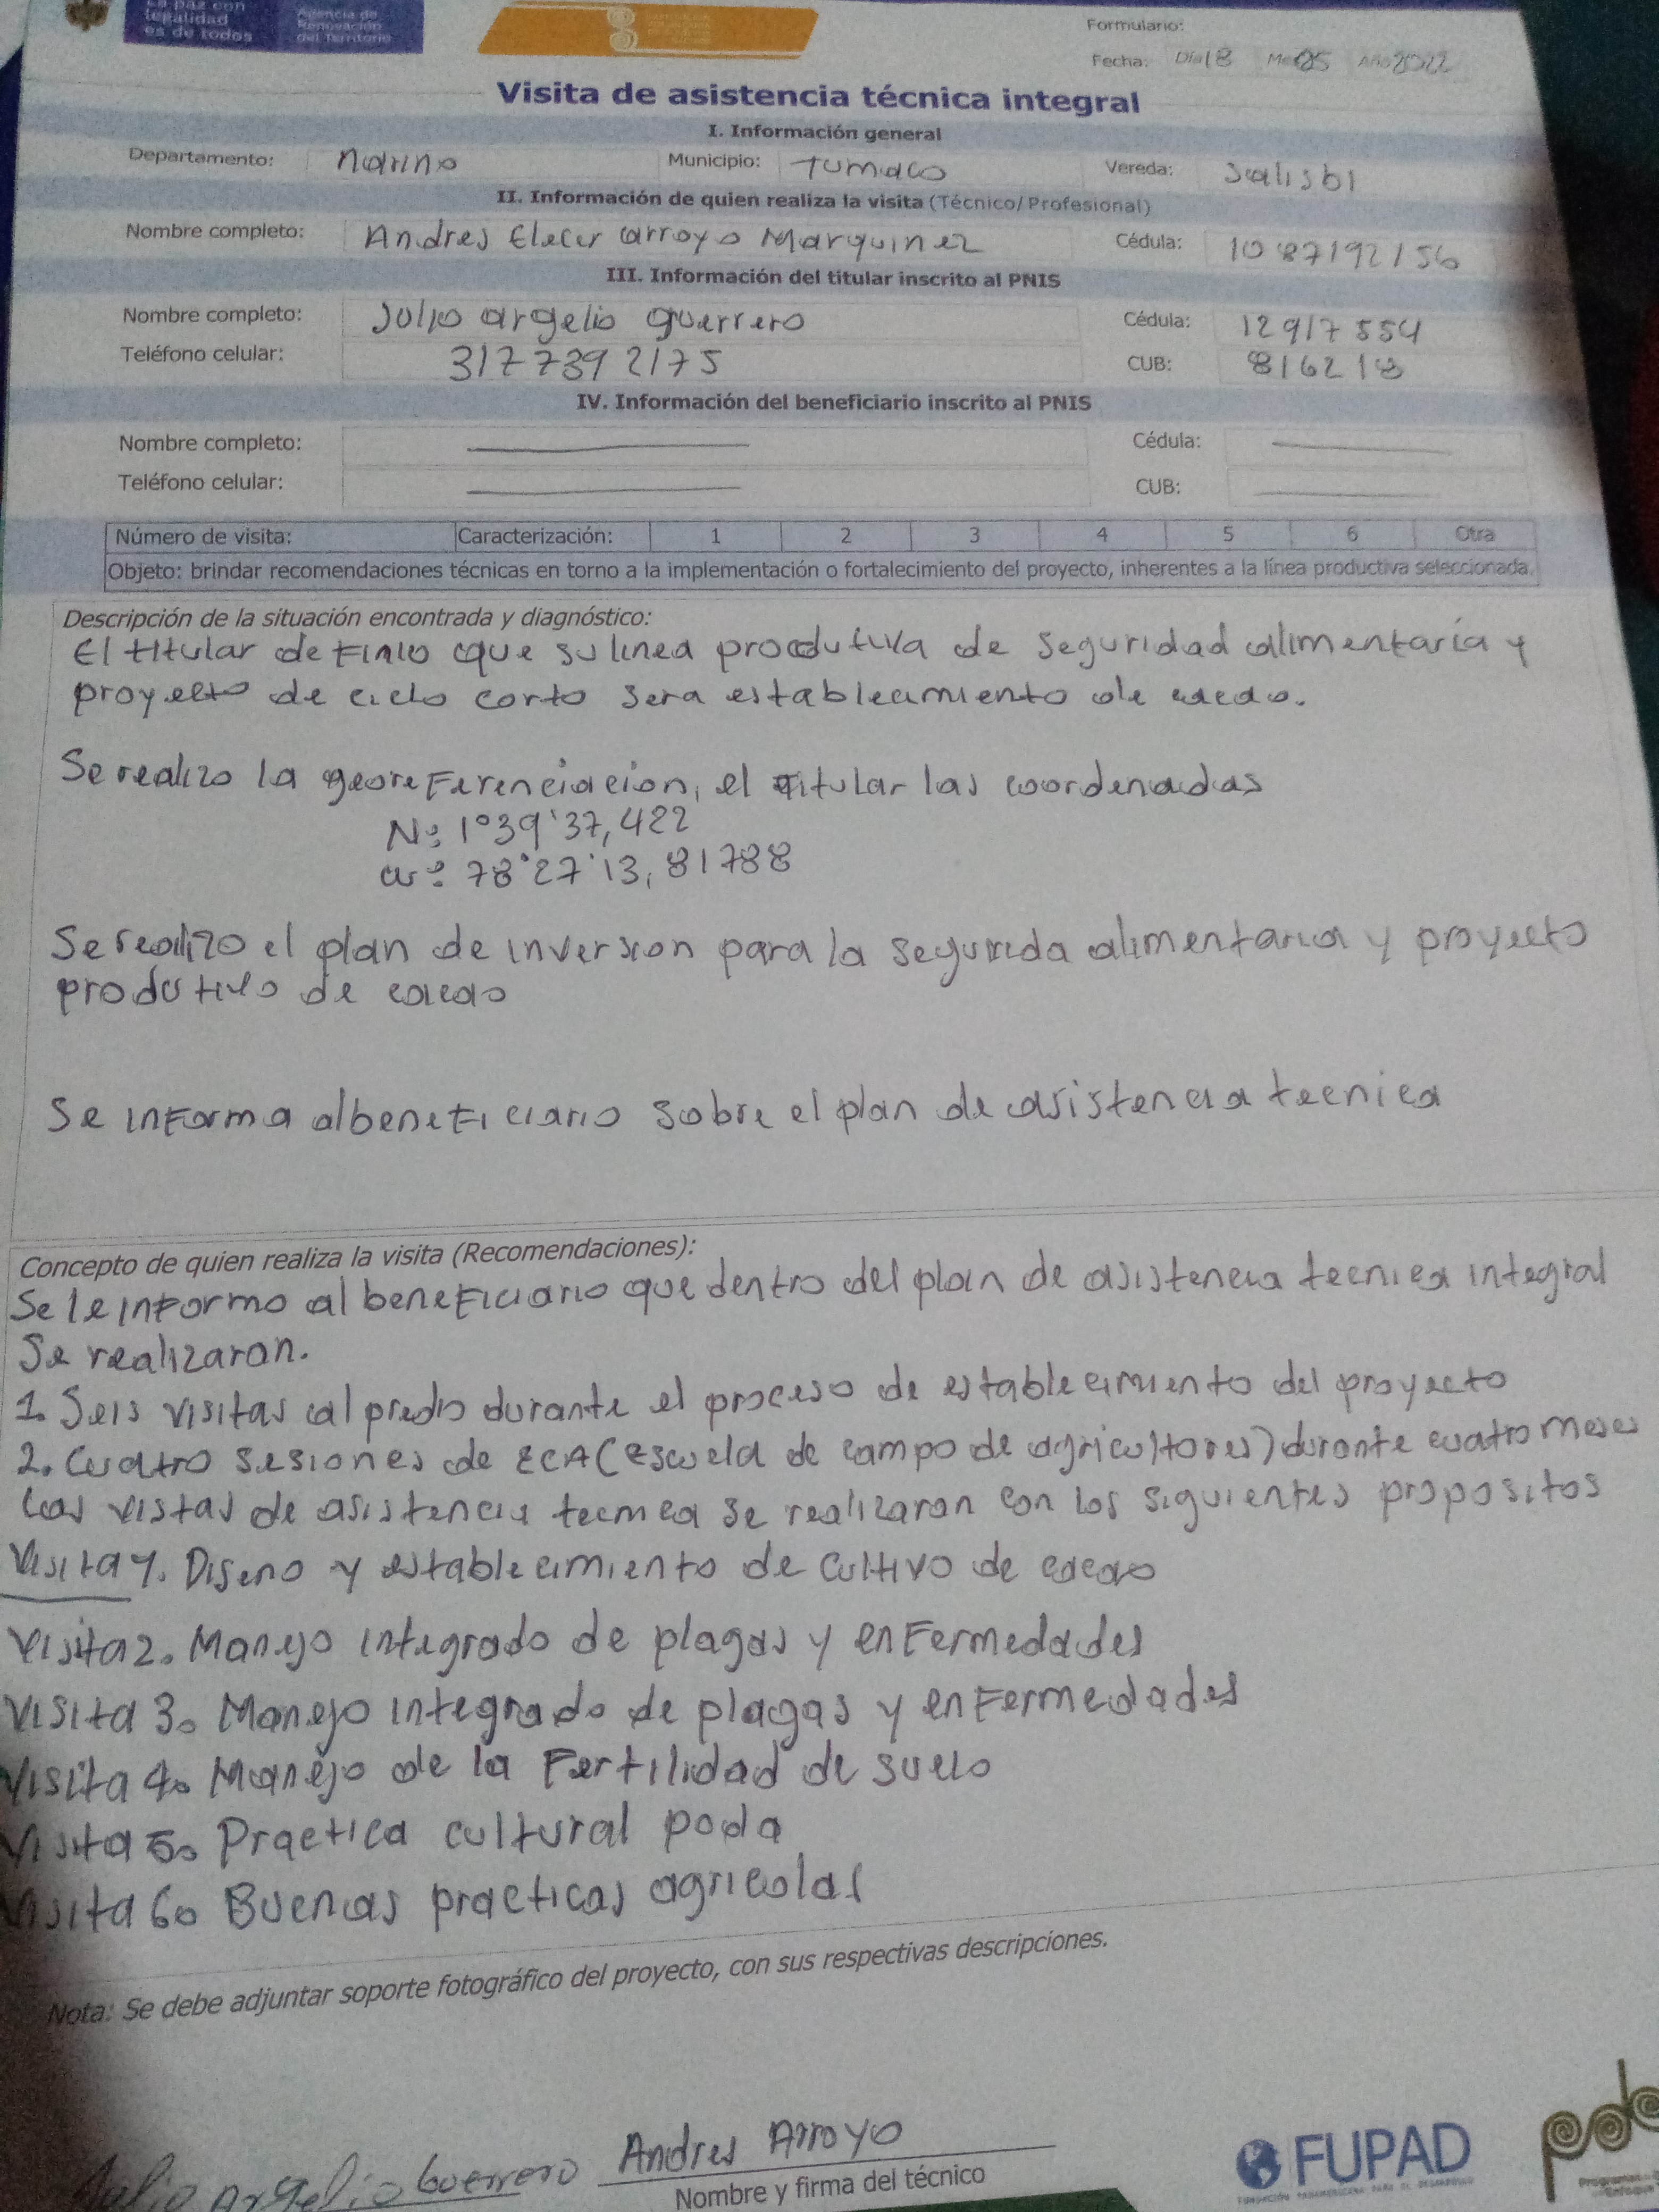 La paz con
legalidad
es de todos
Agencia de
Renovación
del Territorio
Formulario:
Fecha: Día 18 Mes 05 Año 2022
Visita de asistencia técnica integral
I. Información general
Departamento: narino Municipio: Tumaco Vereda: salisbi
II. Información de quien realiza la visita (Técnico/Profesional)
Nombre completo: Andres Elecer arroyo Marquinez Cédula: 1087192156
III. Información del titular inscrito al PNIS
Nombre completo: Julio argelio guerrero Cédula: 12917554
Teléfono celular: 3177392175 CUB: 816218
IV. Información del beneficiario inscrito al PNIS
Nombre completo: Cédula:
Teléfono celular: CUB:
Número de visita: Caracterización: 1 2 3 4 5 6 Otra
Objeto: brindar recomendaciones técnicas en torno a la implementación o fortalecimiento del proyecto, inherentes a la línea productiva seleccionada.
Descripción de la situación encontrada y diagnóstico:
El titular definio que su linea produtiva de seguridad alimentaría y
proyecto de ciclo corto sera establecimiento de cacao.
Se realizo la georeferenciacion, el titular las coordenadas
N: 1°39'37,422
w: 78°27'13,81788
Se realizo el plan de inversion para la segurida alimentaria y proyecto
produtivo de cacao
Se informa al beneficiario sobre el plan de asistencia tecnica
Concepto de quien realiza la visita (Recomendaciones):
Se le informo al beneficiario que dentro del plan de asistencia tecnica integral
Se realizaran.
1. Seis visitas al predio durante el proceso de establecimiento del proyecto
2. Cuatro sesiones de ECA (escuela de campo de agricultores) durante cuatro meses
Las vistas de asistencia tecnica se realizaran con los siguientes propositos
Visita 1. Diseno y establecimiento de cultivo de cacao
Visita 2. Manejo integrado de plagas y enfermedades
Visita 3. Manejo integrado de plagas y enfermedades
Visita 4. Manejo de la Fertilidad de suelo
Visita 5. Practica cultural poda
Visita 6. Buenas practicas agricolas
Nota: Se debe adjuntar soporte fotográfico del proyecto, con sus respectivas descripciones.
Julio Argelio Guerrero Andres Arroyo
Nombre y firma del técnico
FUPAD
FUNDACIÓN PANAMERICANA PARA EL DESARROLLO